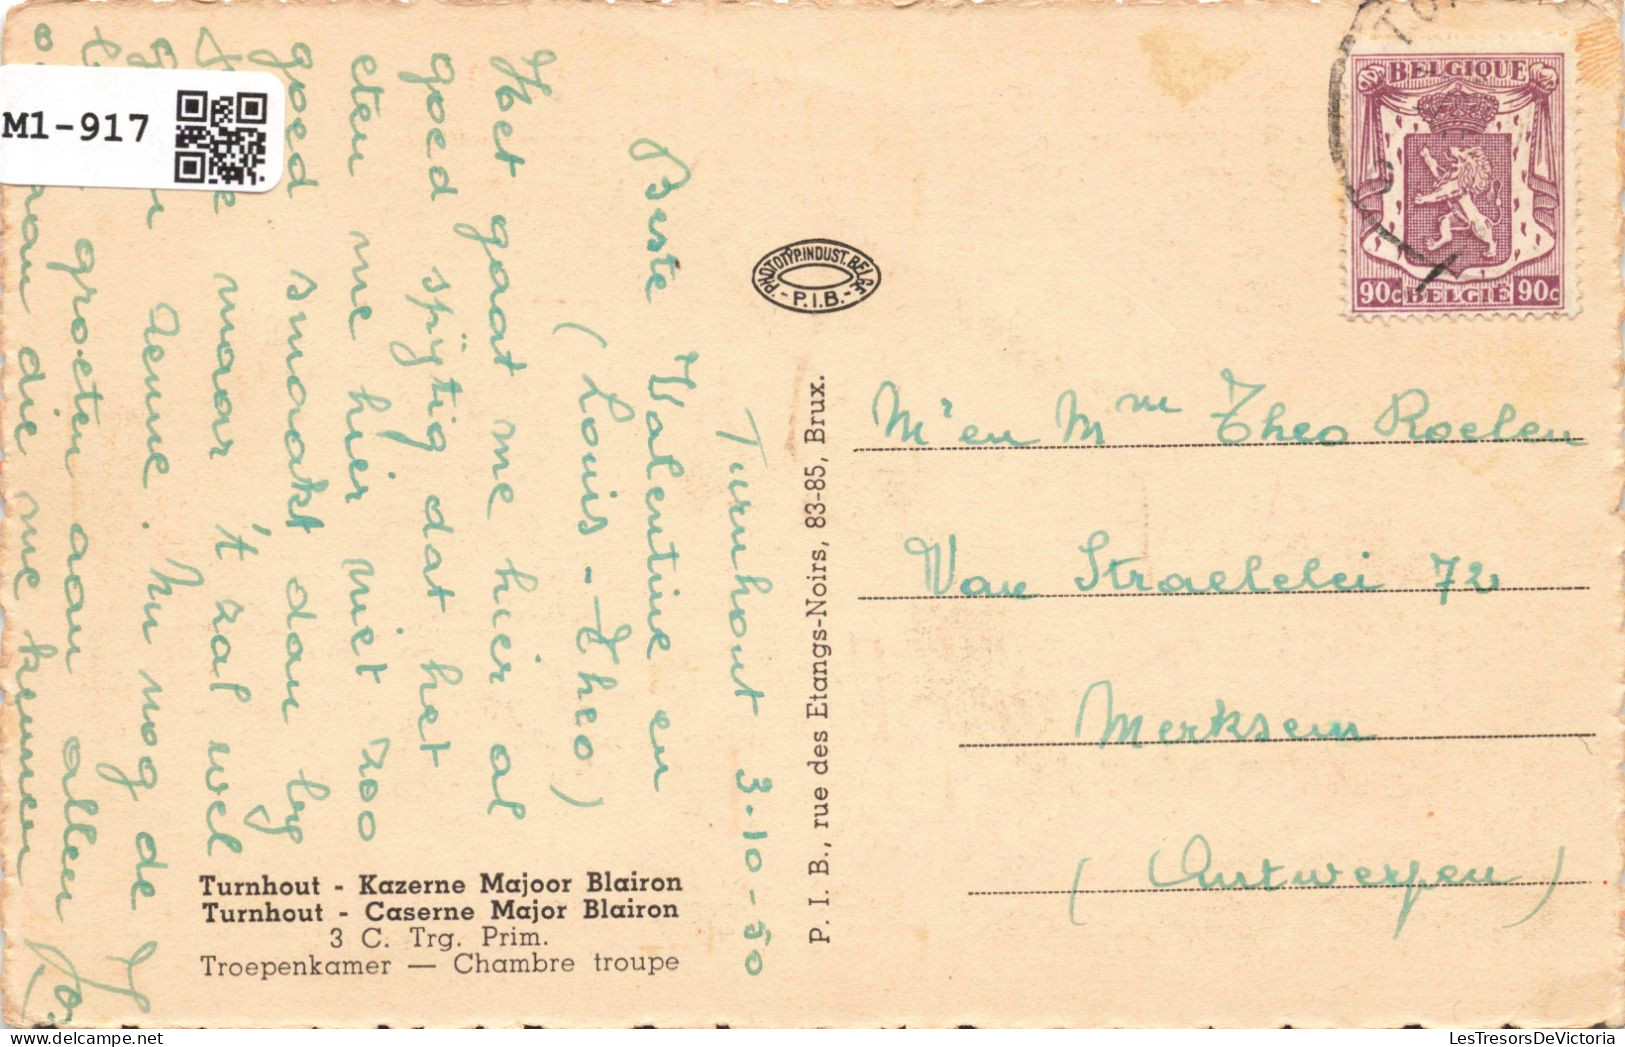 M1-917
Turnhout 3-10-50
Beste Valentine en
(Louis - Theo)
Het gaat me hier al
goed spijtig dat het
eten me hier niet zoo
goed smaakt dan by
maar 't zal wel
Nu nog de
groeten aan allen
die me kennen
Turnhout - Kazerne Majoor Blairon
Turnhout - Caserne Major Blairon
3 C. Trg. Prim.
Troepenkamer — Chambre troupe
PHOTOTYP. INDUST. BELGE
- P.I.B. -
P. I. B., rue des Etangs-Noirs, 83-85, Brux.
BELGIQUE
90c BELGIË 90c
M'en Mme Theo Roelen
Van Straellei 72
Merksem
(Antwerpen)
LesTresorsDeVictoria